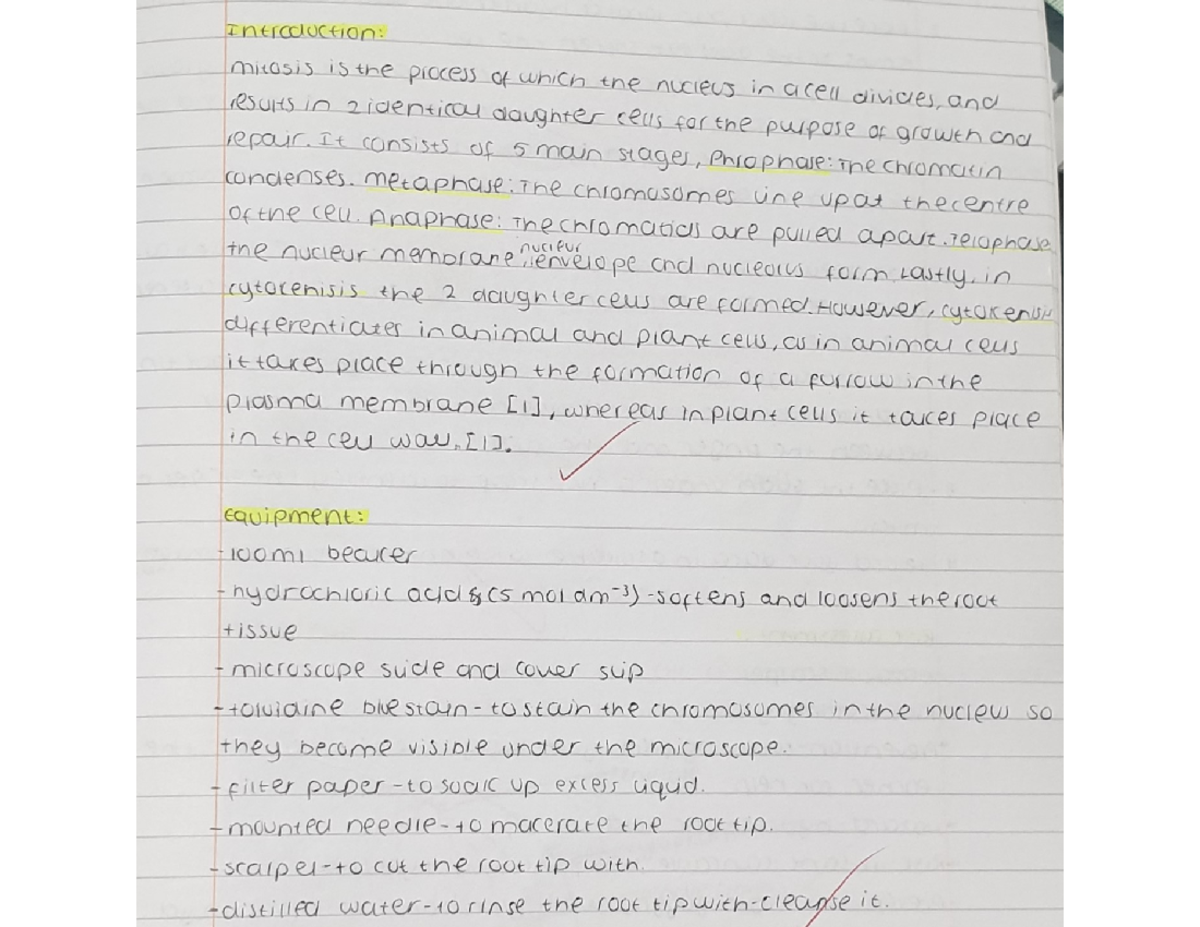 Introduction:
mitosis is the process of which the nucleus in a cell divides, and
results in 2 identical daughter cells for the purpose of growth and
repair. It consists of 5 main stages, Phrophase: The chromatin
condenses. Metaphase: The chromosomes line up at the centre
of the cell. Anaphase: The chromatids are pulled apart. Telophase
the nucleur membrane, nucleur envelope and nucleolus form. Lastly, in
cytocenisis the 2 daughter cells are formed. However, cytokenisis
differentiates in animal and plant cells, as in animal cells
it takes place through the formation of a furrow in the
plasma membrane [1], whereas in plant cells it takes place
in the cell wall. [1].
Equipment:
- 100ml beaker
- hydrochloric acid (5 mol dm⁻³) - softens and loosens the root
tissue
- microscope slide and cover slip
- toluidine blue stain - to stain the chromosomes in the nuclew so
they become visible under the microscope.
- filter paper - to soak up excess liquid.
- mounted needle - to macerate the root tip.
- scalpel - to cut the root tip with.
- distilled water - to rinse the root tip with - cleanse it.